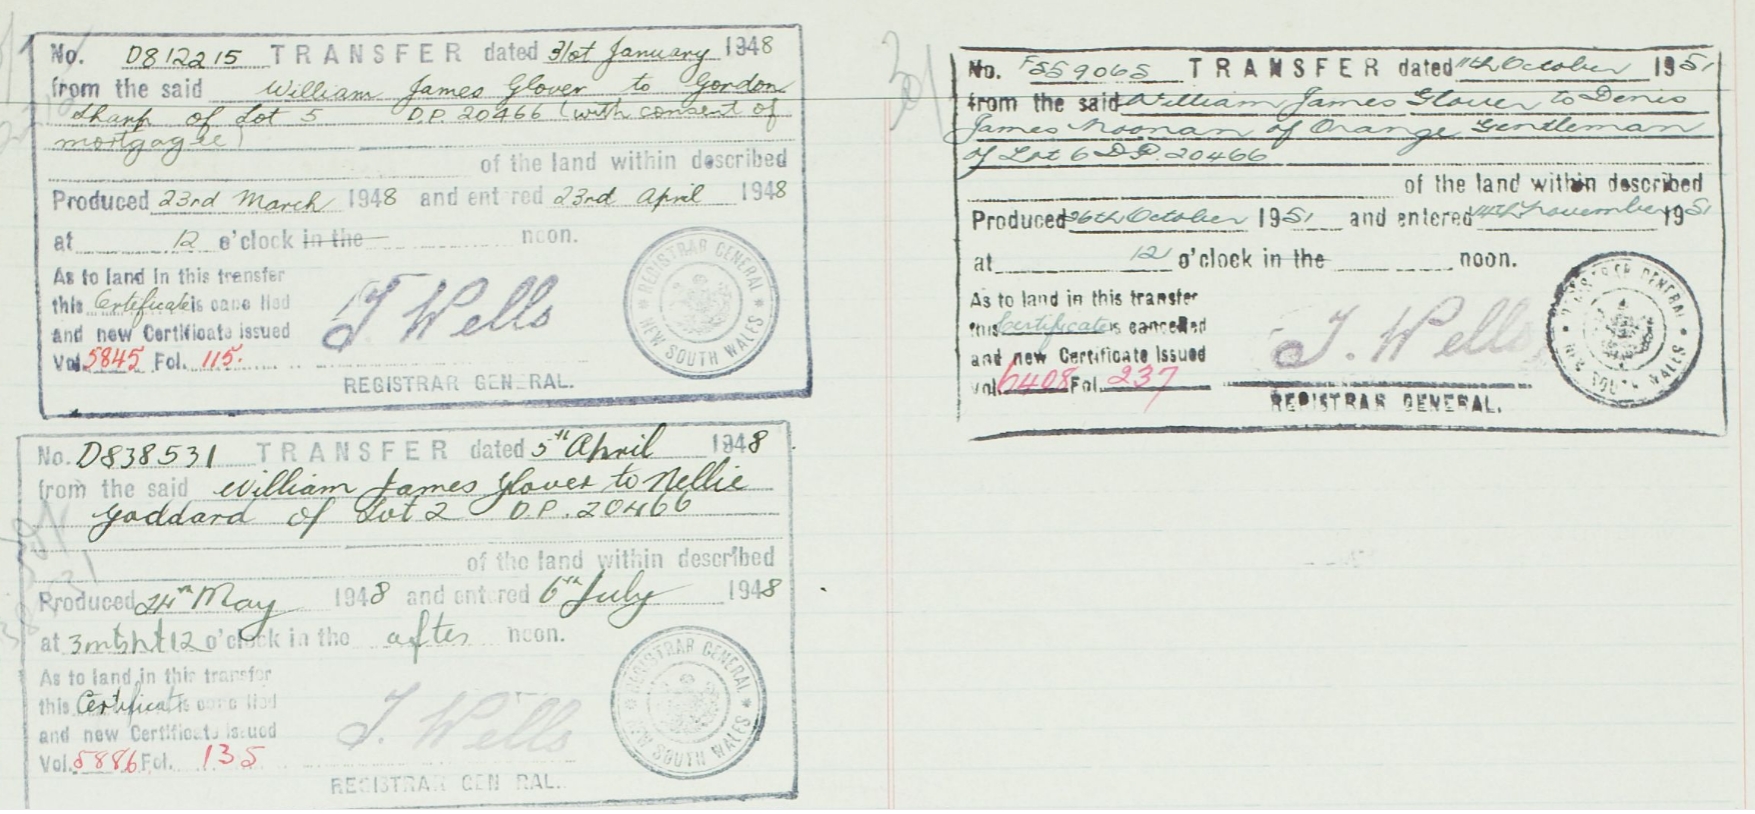 No. D812215 TRANSFER dated 31st January 1948
from the said William James Glover to Gordon
Sharp of Lot 5 D.P. 20466 (with consent of
mortgagee)
of the land within described
Produced 23rd March 1948 and entered 23rd April 1948
at 12 o'clock in the noon.
As to land in this transfer
this Certificate is cancelled
and new Certificate issued
Vol. 5845 Fol. 115.
J Wells
REGISTRAR GENERAL.
REGISTRAR GENERAL
NEW SOUTH WALES
No. D838531 TRANSFER dated 5th April 1948
from the said William James Glover to Nellie
Goddard of Lot 2 D.P. 20466
of the land within described
Produced 24th May 1948 and entered 6th July 1948
at 3 12 o'clock in the after noon.
As to land in this transfer
this Certificate is cancelled
and new Certificate issued
Vol. 5886 Fol. 135
J. Wells
REGISTRAR GENERAL.
REGISTRAR GENERAL
NEW SOUTH WALES
No. F559065 TRANSFER dated 11th October 1951
from the said William James Glover to Denis
James Noonan of Orange Gentleman
of Lot 6 D.P. 20466
of the land within described
Produced 26th October 1951 and entered 14th November 1951
at 12 o'clock in the noon.
As to land in this transfer
this Certificate is cancelled
and new Certificate Issued
Vol. 6408 Fol. 237
J. Wells
REGISTRAR GENERAL.
REGISTRAR GENERAL
NEW SOUTH WALES